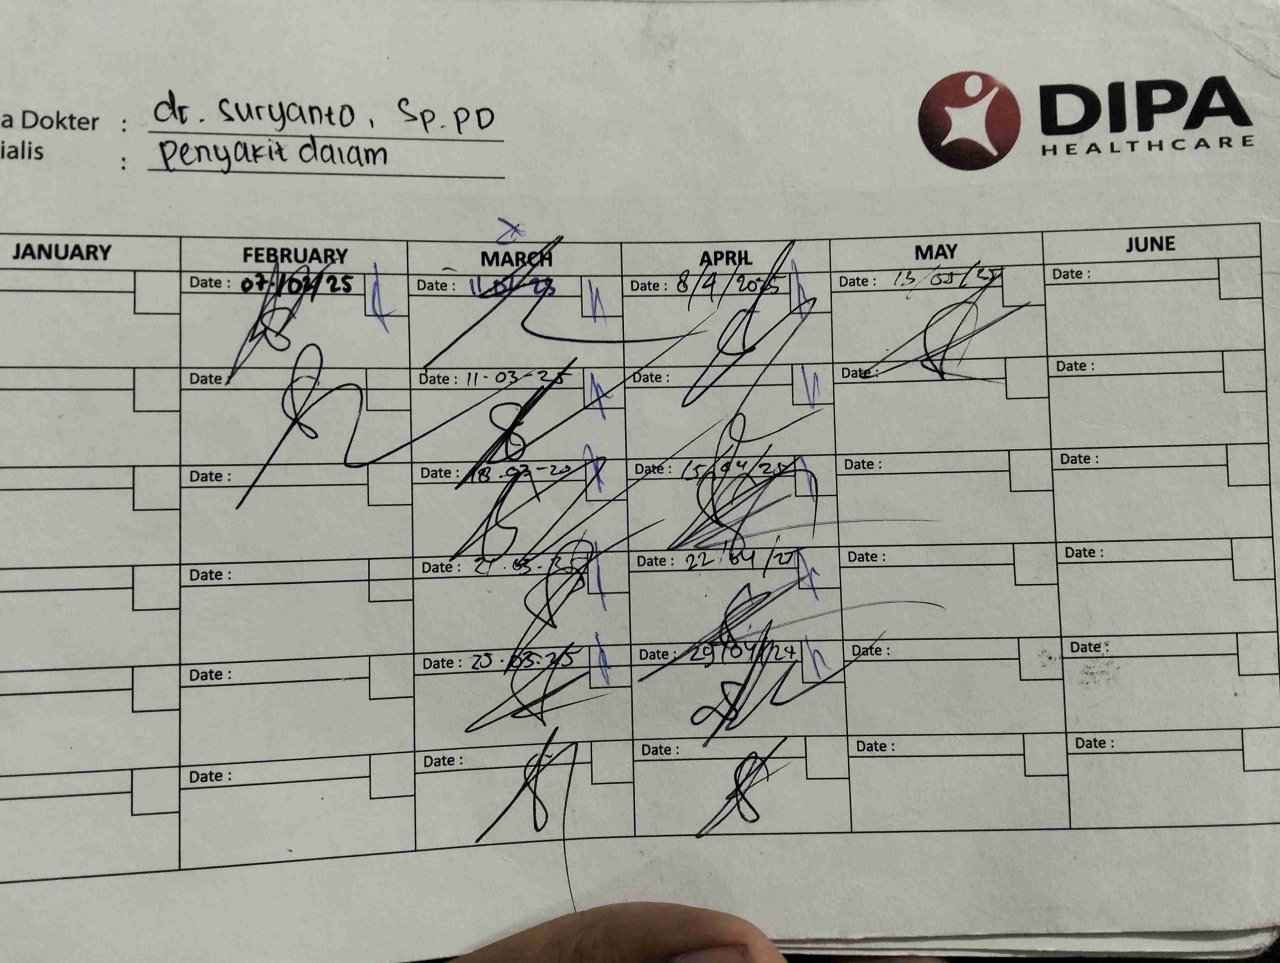 DIPA
HEALTHCARE
a Dokter : dr. Suryanto, Sp.PD
ialis : Penyakit dalam
JANUARY FEBRUARY MARCH APRIL MAY JUNE
Date : 07/02/25 Date : Date : 8/4/2025 Date : Date :
Date Date : 11-03-25 Date : Date : Date :
Date : Date : Date : 15/04/25 Date : Date :
Date : Date : Date : 22/04/25 Date : Date :
Date : 25-03-25 Date : 29/04/24 Date : Date :
Date : Date : Date : Date : Date :